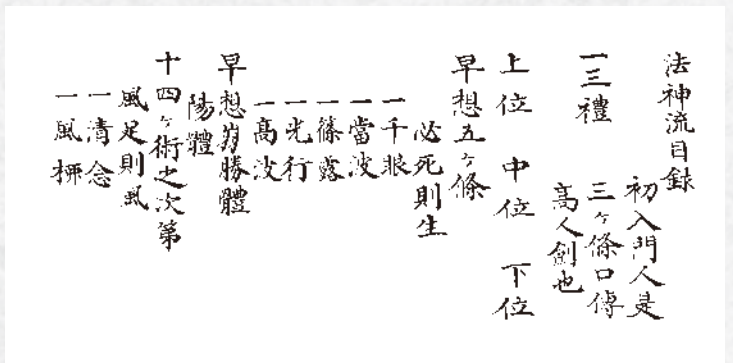 法神流目録
初入門人是
一三禮 三ヶ條口傳
高人劍也
上位 中位 下位
早想五ヶ條
必死則生
一千眼
一當波
一篠露
一光行
一高波
早想 勝體
陽體
十四ヶ術之次第
風足則風
一清念
一風